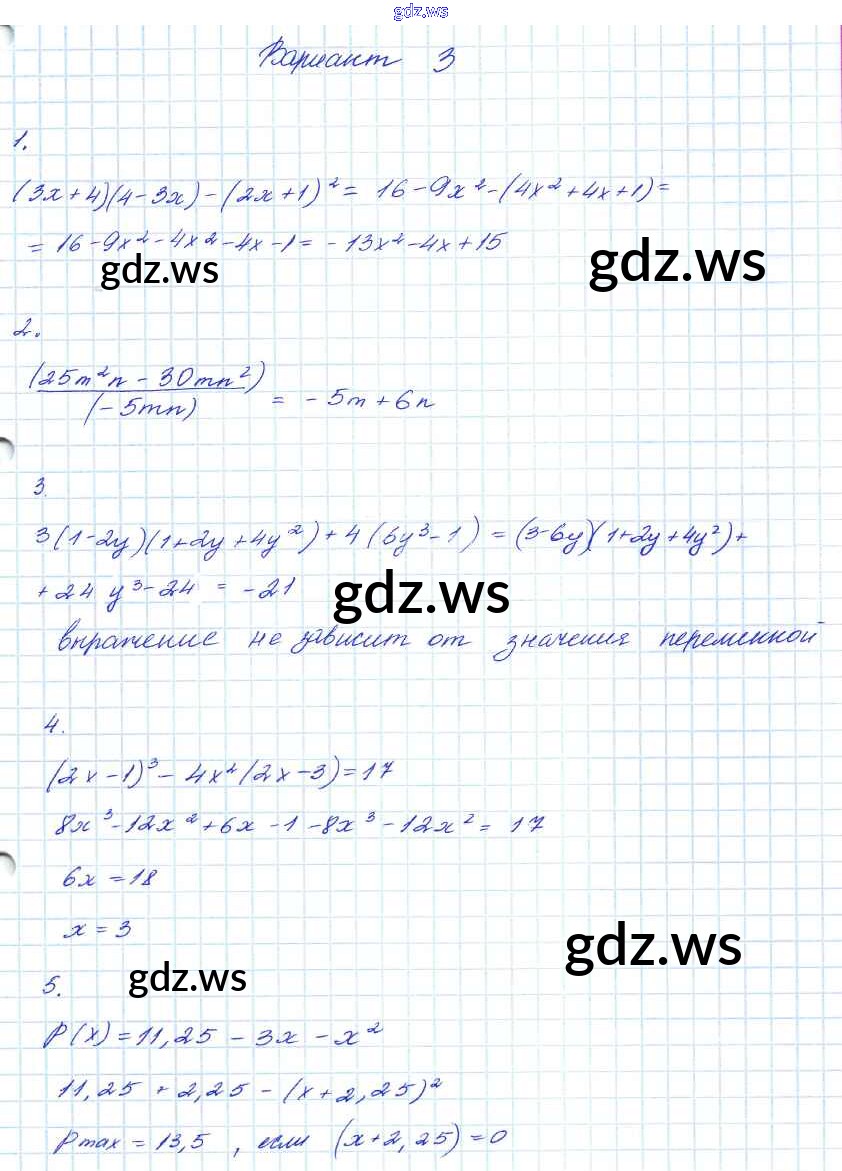 gdz.ws
Вариант 3
1.
(3x+4)(4-3x)-(2x+1)²= 16-9x²-(4x²+4x+1)=
=16-9x²-4x²-4x-1= -13x²-4x+15
gdz.ws gdz.ws
2.
(25m²n - 30mn²)
(-5mn) = -5m+6n
3.
3(1-2y)(1+2y+4y²)+4(6y³-1) = (3-6y)(1+2y+4y²)+
+24 y³-24 = -21
gdz.ws
выражение не зависит от значения переменной
4.
(2x-1)³- 4x²(2x-3)=17
8x³-12x²+6x-1-8x³-12x²= 17
6x =18
x = 3
gdz.ws
gdz.ws
5.
P(x)=11,25 - 3x - x²
11,25 + 2,25 - (x+2,25)²
Pmax = 13,5 , если (x+2,25)=0